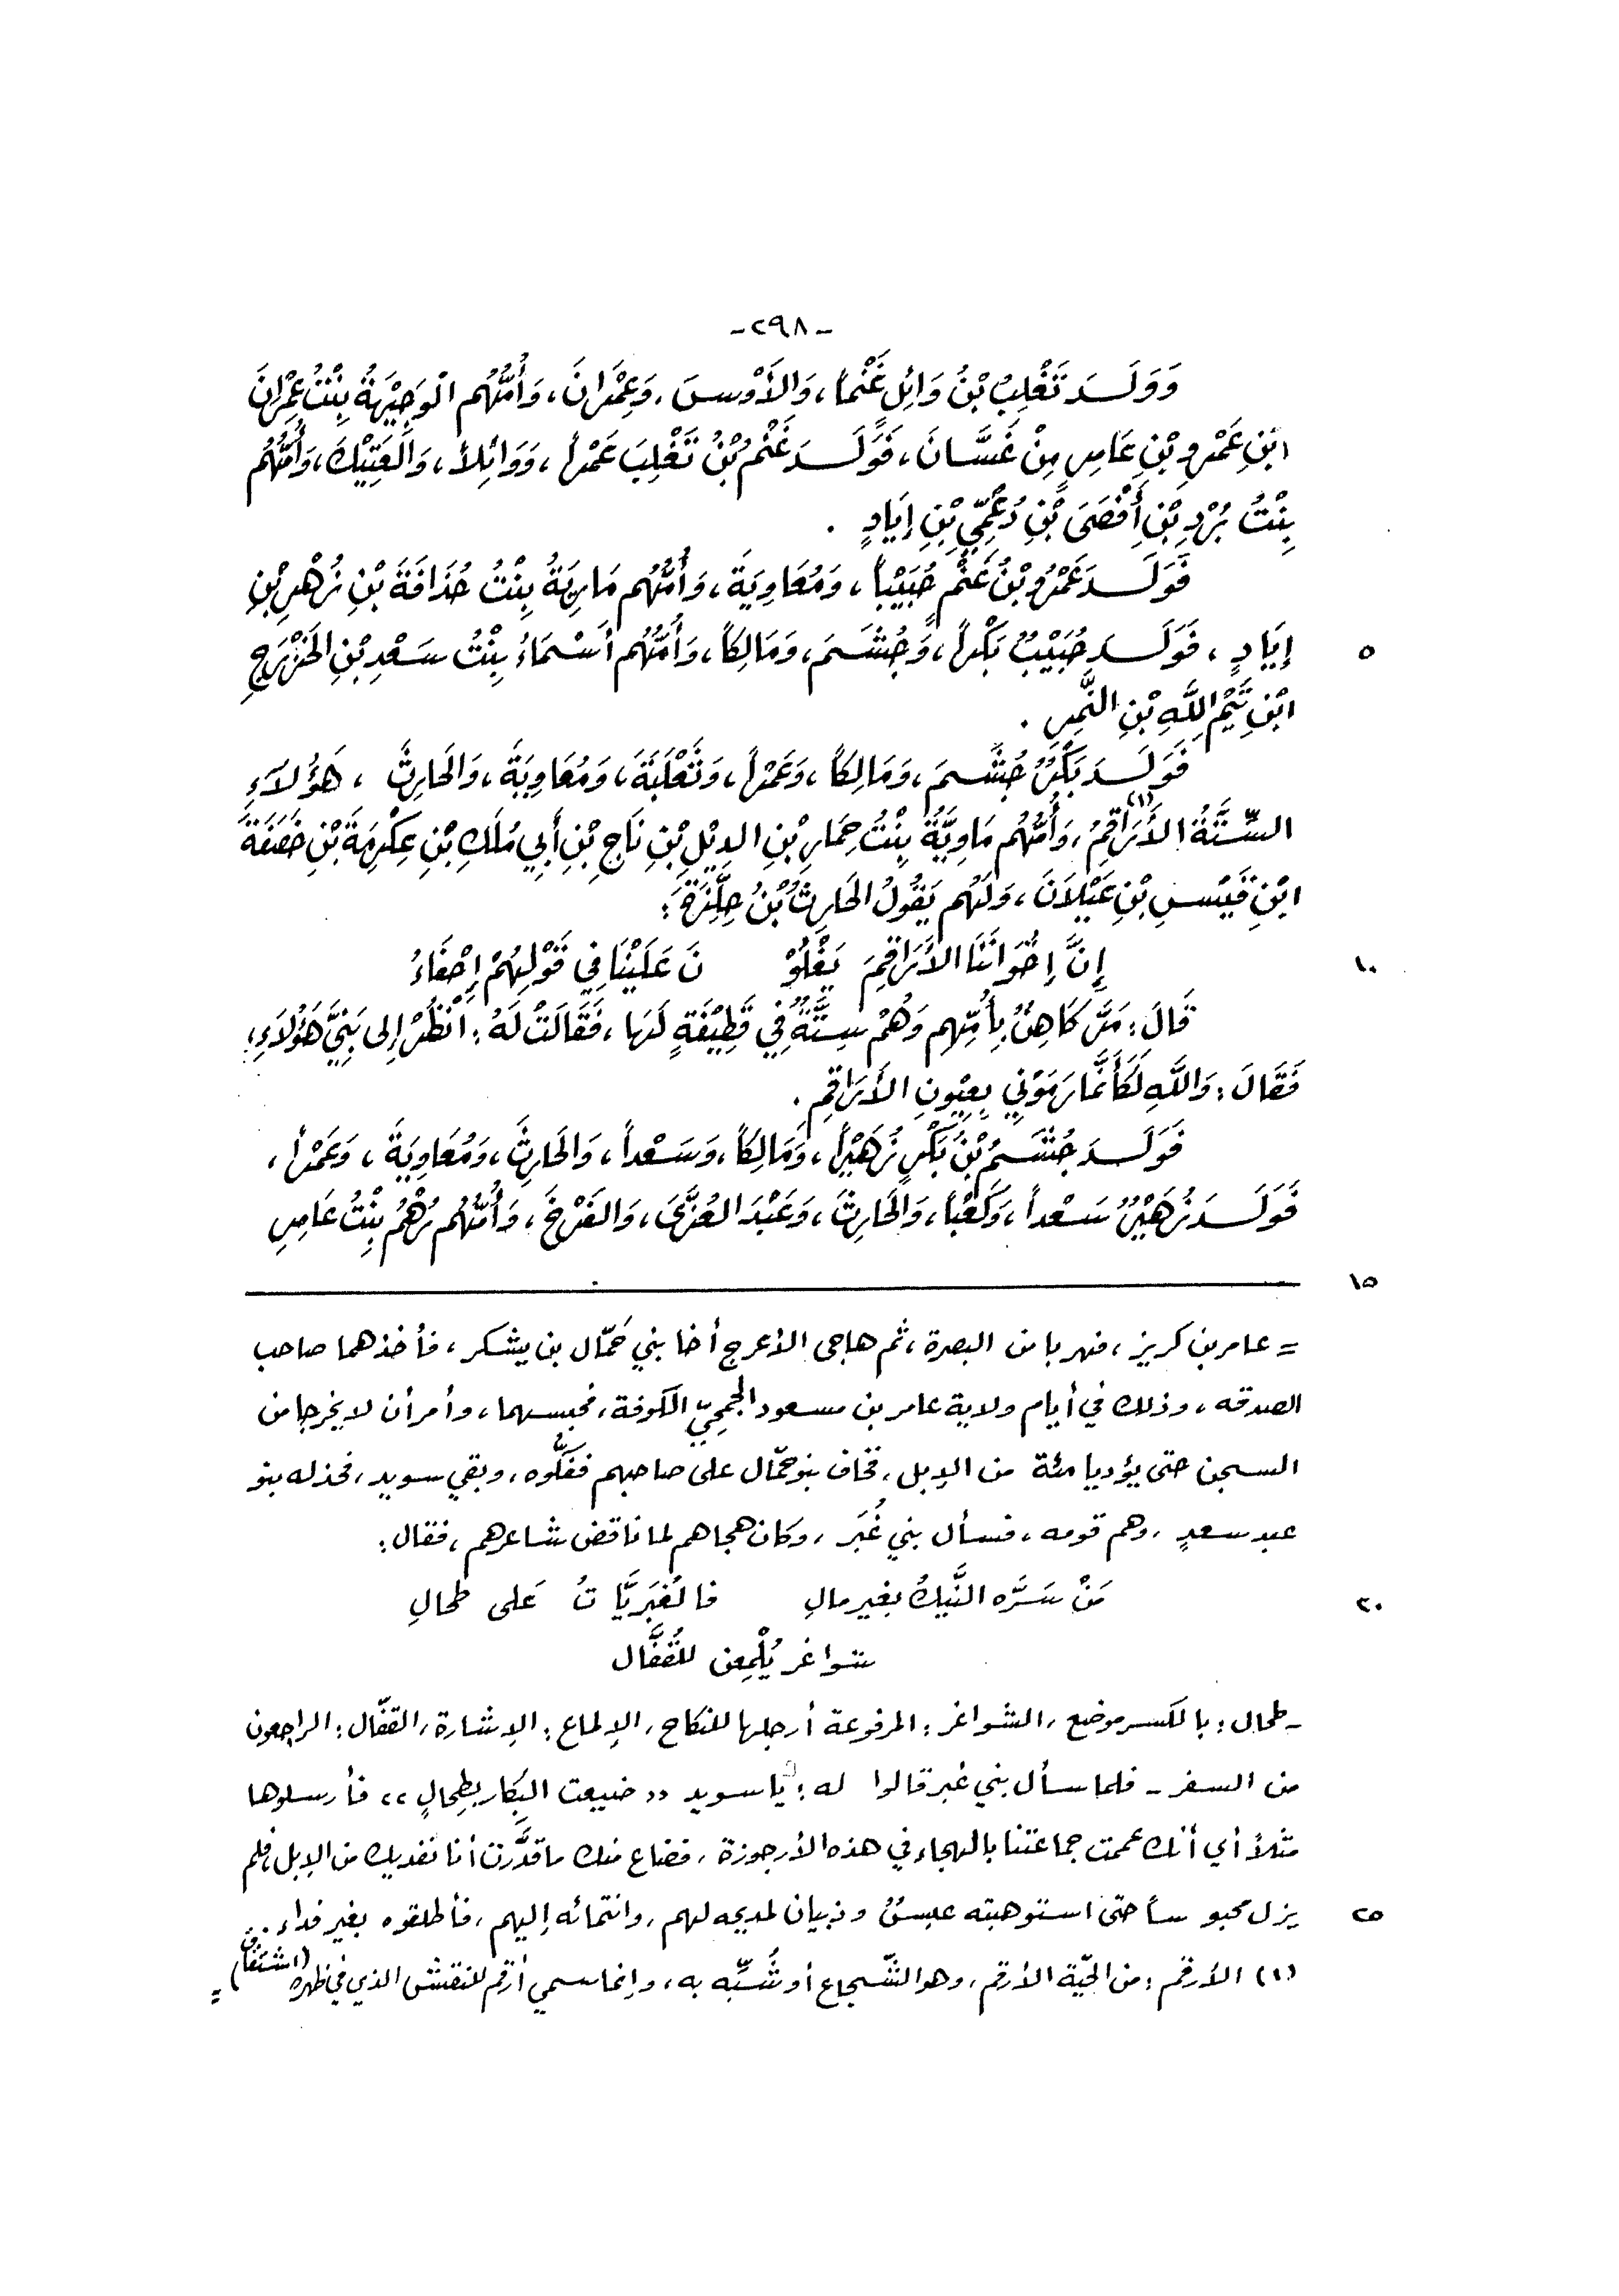 -٢٩٨-
وَوَلَدَ تَغْلِبُ بْنُ وَائِلٍ غَنْماً، وَالأَوْسَ، وَعِمْرَانَ، وَأُمُّهُم الْوَجِيْهَةُ بِنْتُ عِمْرَانَ
ابْنِ عَمْرِو بْنِ عَامِرٍ مِنْ غَسَّانَ، فَوَلَدَ غَنْمُ بْنُ تَغْلِبَ عَمْراً، وَوَائِلاً، وَالْعَتِيْكَ، وَأُمُّهُم
بِنْتُ بُرْدِ بْنِ أَفْصَى بْنِ دُعْمِيِّ بْنِ إِيَادٍ .
فَوَلَدَ عَمْرُو بْنُ غَنْمٍ حُبَيْباً، وَمُعَاوِيَةَ، وَأُمُّهُم مَارِيَةُ بِنْتُ حُذَافَةَ بْنِ زُهْرِ بْنِ
إِيَادٍ، فَوَلَدَ حُبَيْبٌ بَكْراً، وَجُشَمَ، وَمَالِكاً، وَأُمُّهُم أَسْمَاءُ بِنْتُ سَعْدِ بْنِ الخَزْرَجِ ٥
ابْنِ تَيْمِ اللَّهِ بْنِ النَّمِرِ .
فَوَلَدَ بَكْرٌ جُشَمَ، وَمَالِكاً، وَعَمْراً، وَثَعْلَبَةَ، وَمُعَاوِيَةَ، وَالحَارِثَ، هَؤُلاَءِ
السِّتَّةُ الأَرَاقِمُ(١)، وَأُمُّهُم مَاوِيَّةُ بِنْتُ حِمَارِ بْنِ الدِيْلِ بْنِ نَاجِ بْنِ أَبِي مُلَكِ بْنِ عِكْرِمَةَ بْنِ خَصَفَةَ
ابْنِ قَيْسِ بْنِ عَيْلاَنَ، وَلَهُم يَقُولُ الحَارِثُ بْنُ حِلِّزَةَ:
إِنَّ إِخْوَانَنَا الأَرَاقِمَ يَغْلُوْ نَ عَلَيْنَا فِي قَوْلِهِمْ إِحْفَاءُ ١٠
قَالَ: مَرَّ كَاهِنٌ بِأُمِّهِم وَهُمْ سِتَّةٌ فِي قَطِيْفَةٍ لَهَا، فَقَالَتْ لَهُ: انْظُرْ إِلى بَنِيَّ هَؤُلاَءِ؛
فَقَالَ: وَاللَّهِ لَكَأَنَّمَا رَمَوْنِي بِعِيُونِ الأَرَاقِمِ.
فَوَلَدَ جُشَمُ بْنُ بَكْرٍ زُهَيْراً، وَمَالِكاً، وَسَعْداً، وَالحَارِثَ، وَمُعَاوِيَةَ، وَعَمْراً،
فَوَلَدَ زُهَيْرٌ سَعْداً، وَكَعْباً، وَالحَارِثَ، وَعَبْدَ العُزَّى، وَالفَرْخَ، وَأُمُّهُم رُهْمُ بِنْتُ عَامِرِ
١٥
= عامر بن كريز، فهربا من البصرة، ثم هاجى الأعرج أخا بني حَمّال بن يشكر، فأخذهما صاحب
الصدقه، وذلك في أيام ولاية عامر بن مسعود الجمحِيّ الكوفة، فحبسهما، وأمر أن لا يخرجا من
السجن حتى يؤديا مئة من الإبل، فخاف بنو حمّال على صاحبهم ففكّوه، وبقي سويد، فخذله بنو
عبد سعدٍ، وهم قومه، فسأل بني غُبَر، وكان هجاهم لما ناقض شاعرهم، فقال:
مَنْ سَرَّه النَّيكُ بغير مالِ فالغُبَرِيَّاتُ عَلى طحالِ ٢٠
شواغر يُلْمِعن للقُفَّال
ـ طحال: بالكسر موضع، الشواغر: المرفوعة أرجلها للنكاح، الإلماع: الإشارة، القفّال: الراجعون
من السفر ـ فلما سأل بني غبر قالوا له: يا سويد ,, ضيعت البِكار بِطِحالٍ ،، فأرسلوها
مثلاً أي أنك عممت جماعتنا بالهجاء في هذه الأرجوزة، فضاع منك ما قدَّرت أنا نفديك من الإبل، فلم
يزل محبوساً حتى استوهبته عبسٌ وذبيان لمديحه لهم، وانتمائه إليهم، فأطلقوه بغير فداء.. ٢٥
(١) الأرقم: من الحيّة الأرقم، وهو الشّجاع أو شُبِّه به، وإنما سمي أرقم للنقش الذي في ظهره (اشتقاق) =